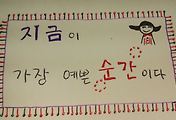 지금이
가장 예쁜 순간이다